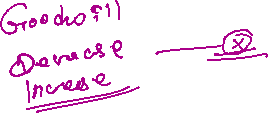 Goodwill
Decrease
Increase
x